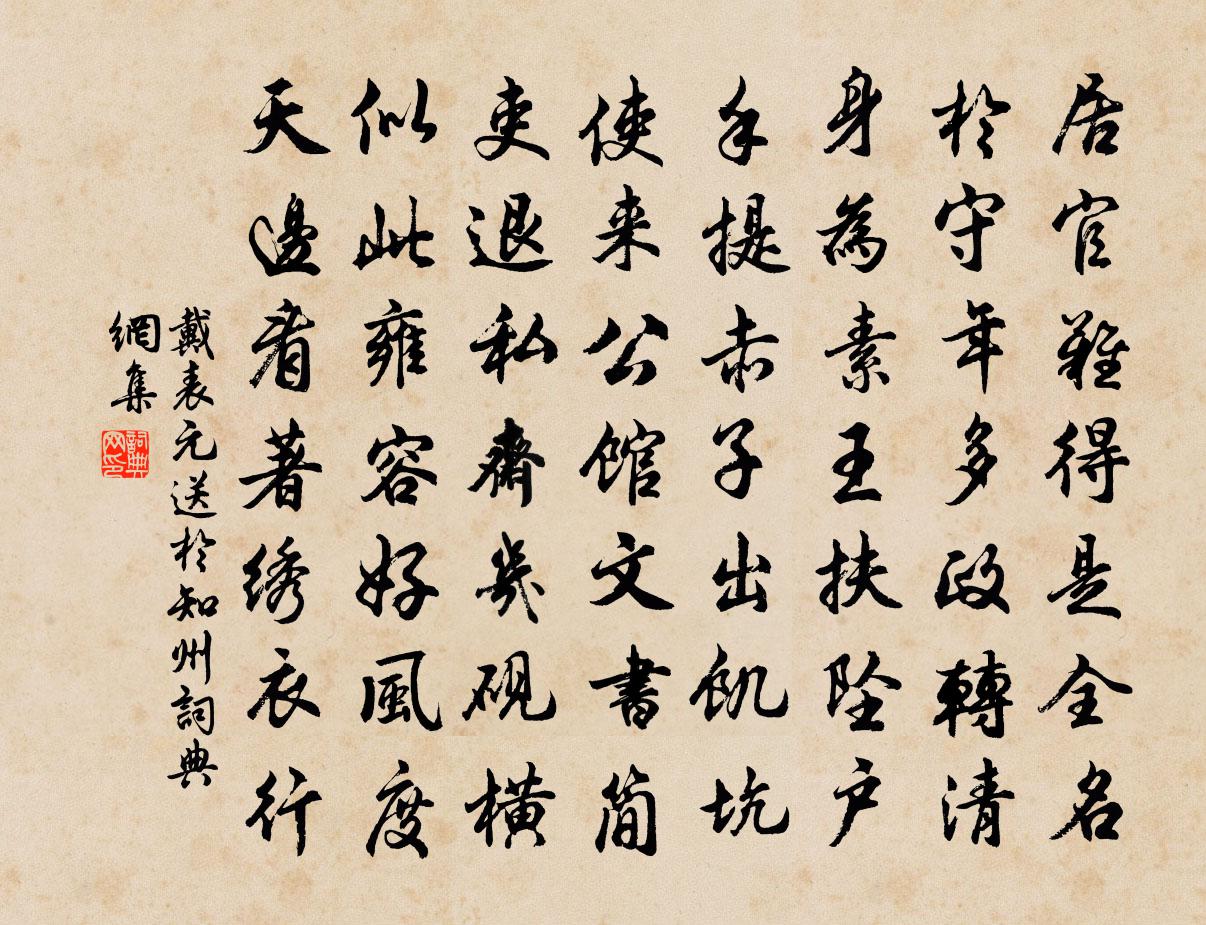 居官難得是全名
於守年多政轉清
身為素王扶墜戶
手提赤子出飢坑
使来公館文書简
吏退私齋幾硯橫
似此雍容好風度
天邊看著绣衣行
戴表元送於知州詞典
網集
詞典
网印